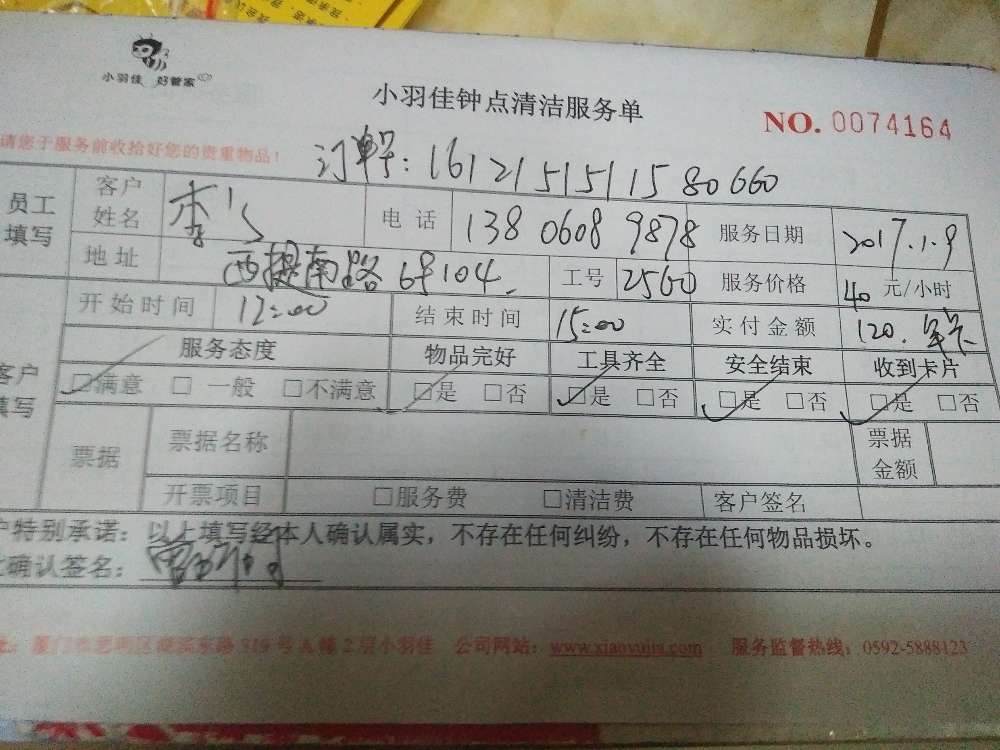 小羽佳 好管家
小羽佳钟点清洁服务单
NO. 0074164
请您于服务前收拾好您的贵重物品！
订单号: 16121515115 80660
员工填写 客户姓名 李 电话 138 0608 9878 服务日期 2017.1.9
地址 西堤南路 6号104. 工号 2560 服务价格 40 元/小时
开始时间 12:00 结束时间 15:00 实付金额 120. 年卡
客户填写 服务态度 物品完好 工具齐全 安全结束 收到卡片
□满意 □一般 □不满意 □是 □否 □是 □否 □是 □否 □是 □否
票据 票据名称 票据金额
开票项目 □服务费 □清洁费 客户签名
户特别承诺：以上填写经本人确认属实，不存在任何纠纷，不存在任何物品损坏。
确认签名：
厦门市思明区 东路 319号A幢2层小羽佳 公司网站：www.xiaoyujia.com 服务监督热线：0592-5888123